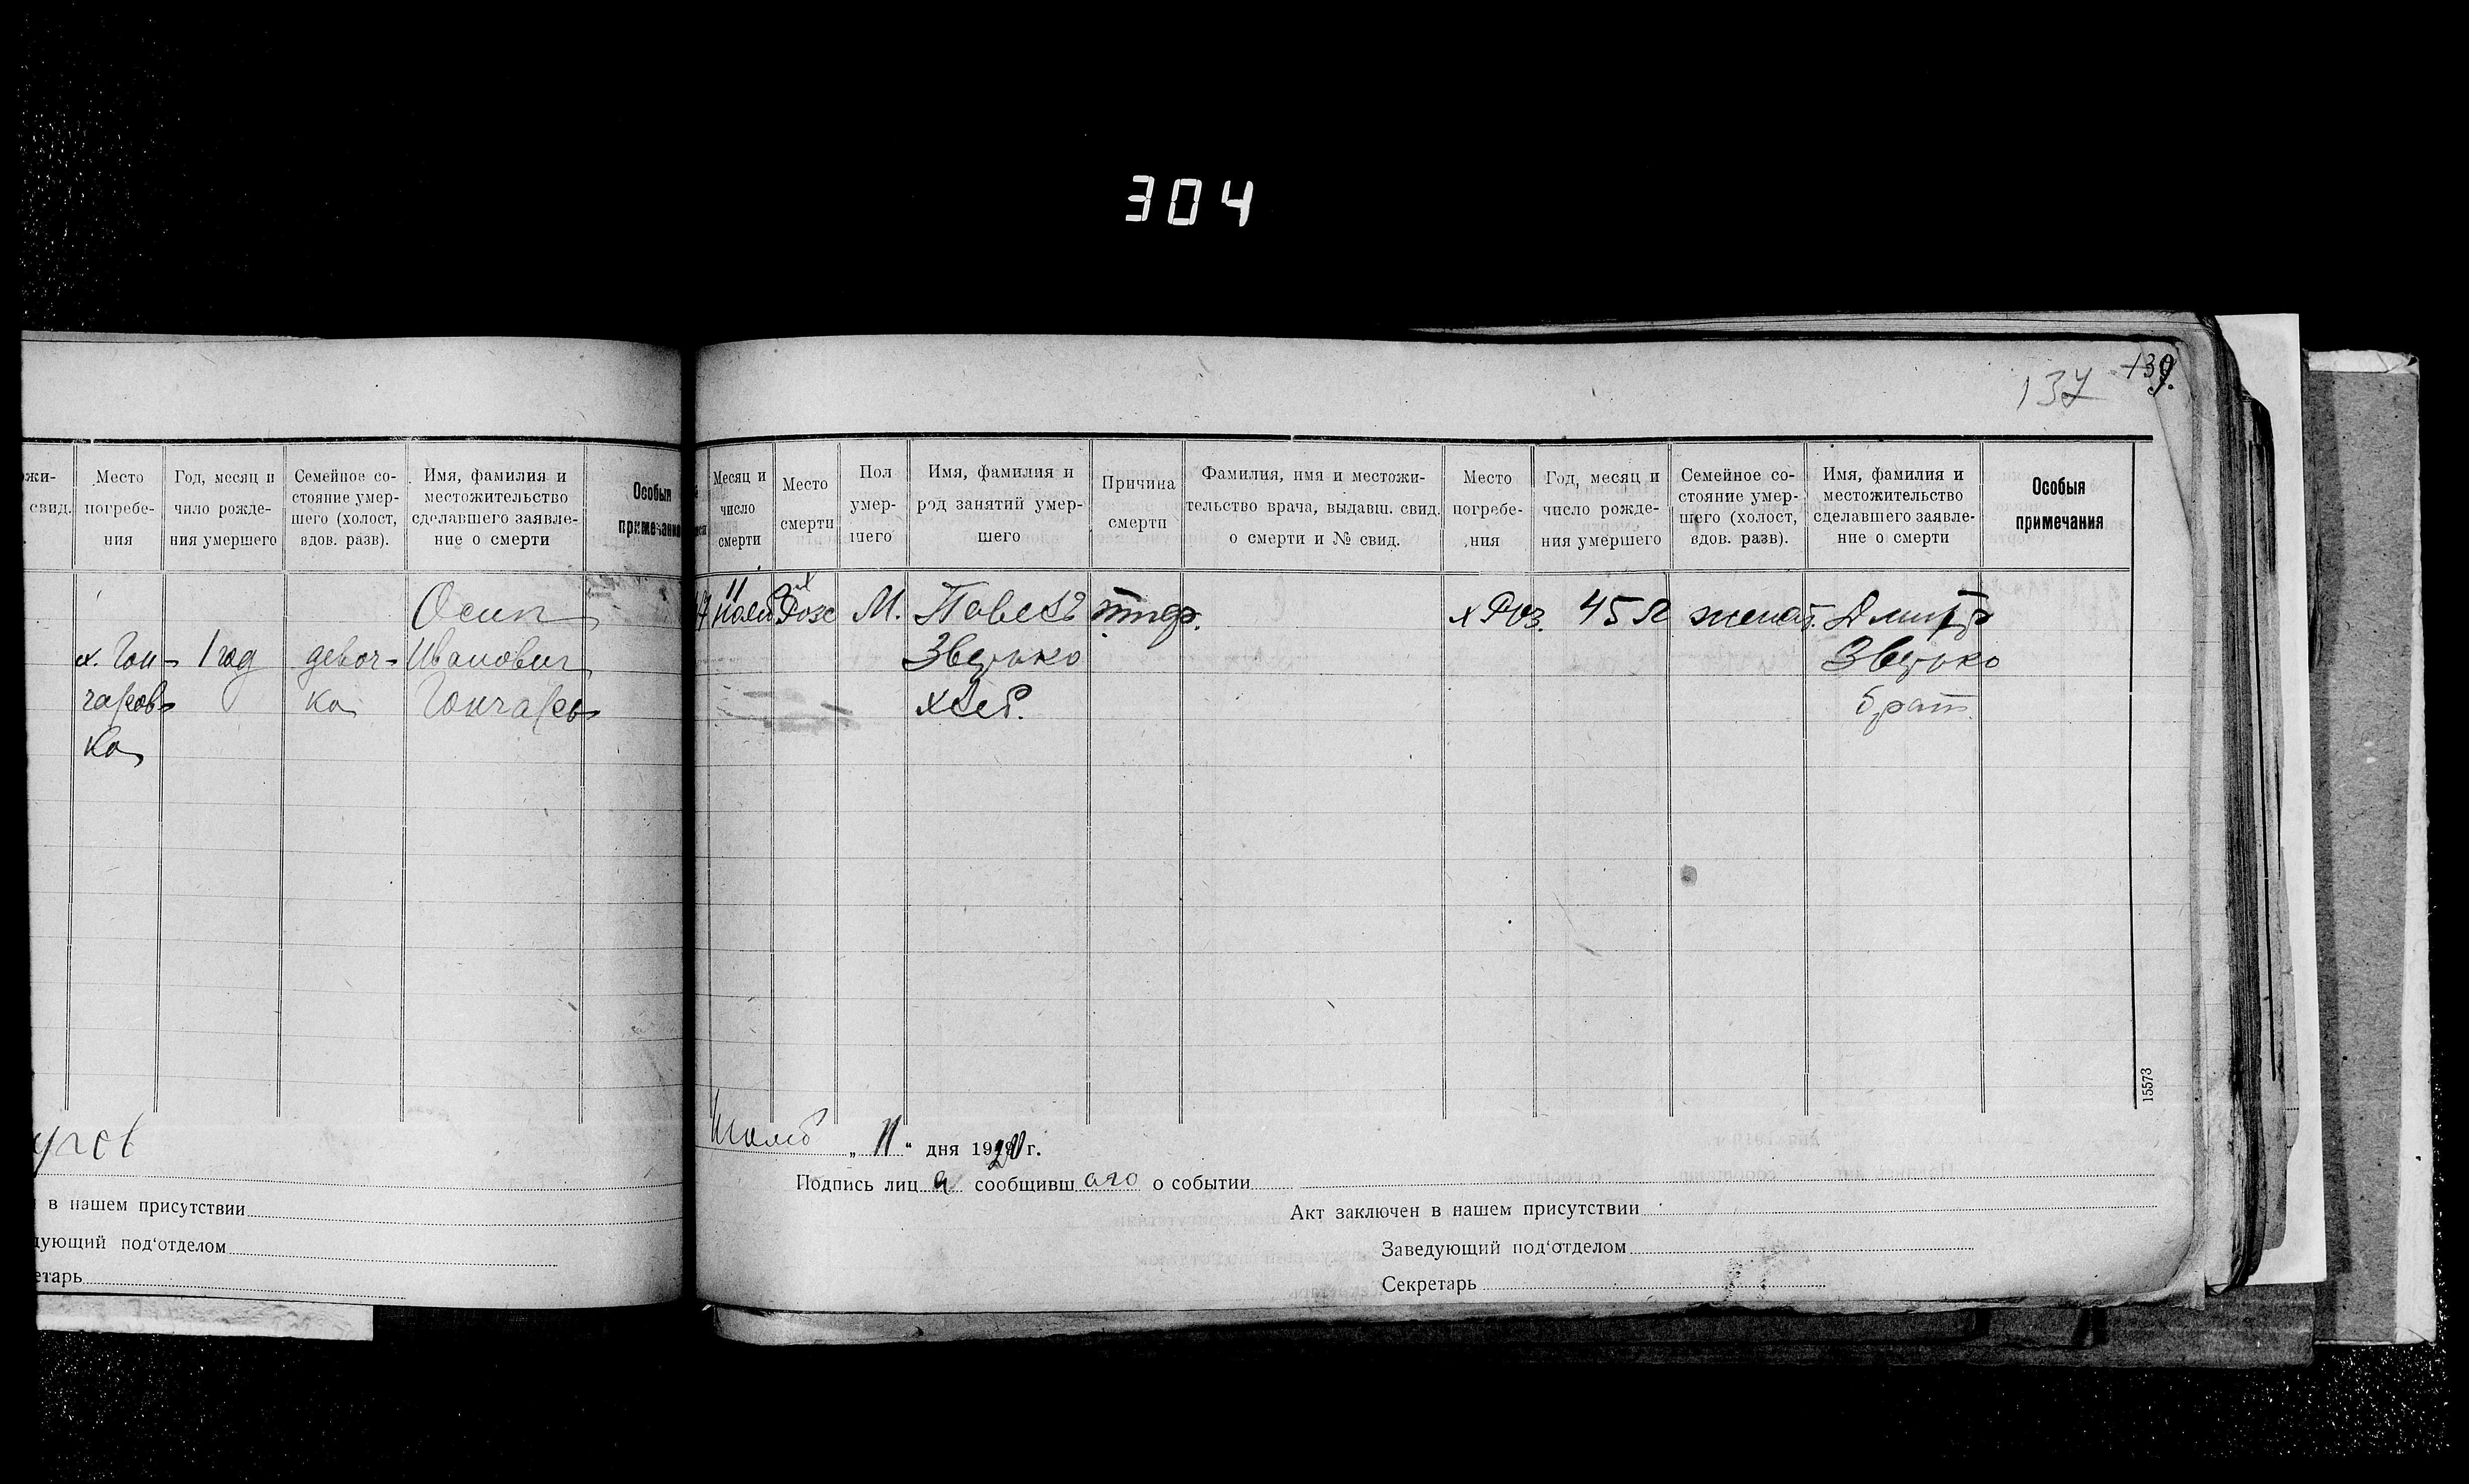 304
137 139.
жи-
свид.
Место
погребе-
ния
Год, месяц и
чило рожде-
ния умершего
Семейное со-
стояние умер-
шего (холост,
вдов. разв).
Имя, фамилия и
местожительство
сделавшего заявле-
ние о смерти
Особыя
примечания
х. Гон-
чаров-
ка
1 год
девоч-
ка
Осип
Иванович
Гончаров
в нашем присутствии
дующий под'отделом
етарь
Месяц и
число
смерти
Место
смерти
Пол
умер-
шего
Имя, фамилия и
род занятий умер-
шего
Причина
смерти
Фамилия, имя и местожи-
тельство врача, выдавш. свид.
о смерти и № свид.
Место
погребе-
ния
Год, месяц и
число рожде-
ния умершего
Семейное со-
стояние умер-
шего (холост,
вдов. разв).
Имя, фамилия и
местожительство
сделавшего заявле-
ние о смерти
Особыя
примечания
11
х
М.
Звирко
хлеб.
тиф.
х Роз.
45 л
женат.
Дмитр
Звирко
брат
15573
„ 11 “ дня 1920 г.
Подпись лица сообщившаго о событии
Акт заключен в нашем присутствии
Заведующий под'отделом
Секретарь